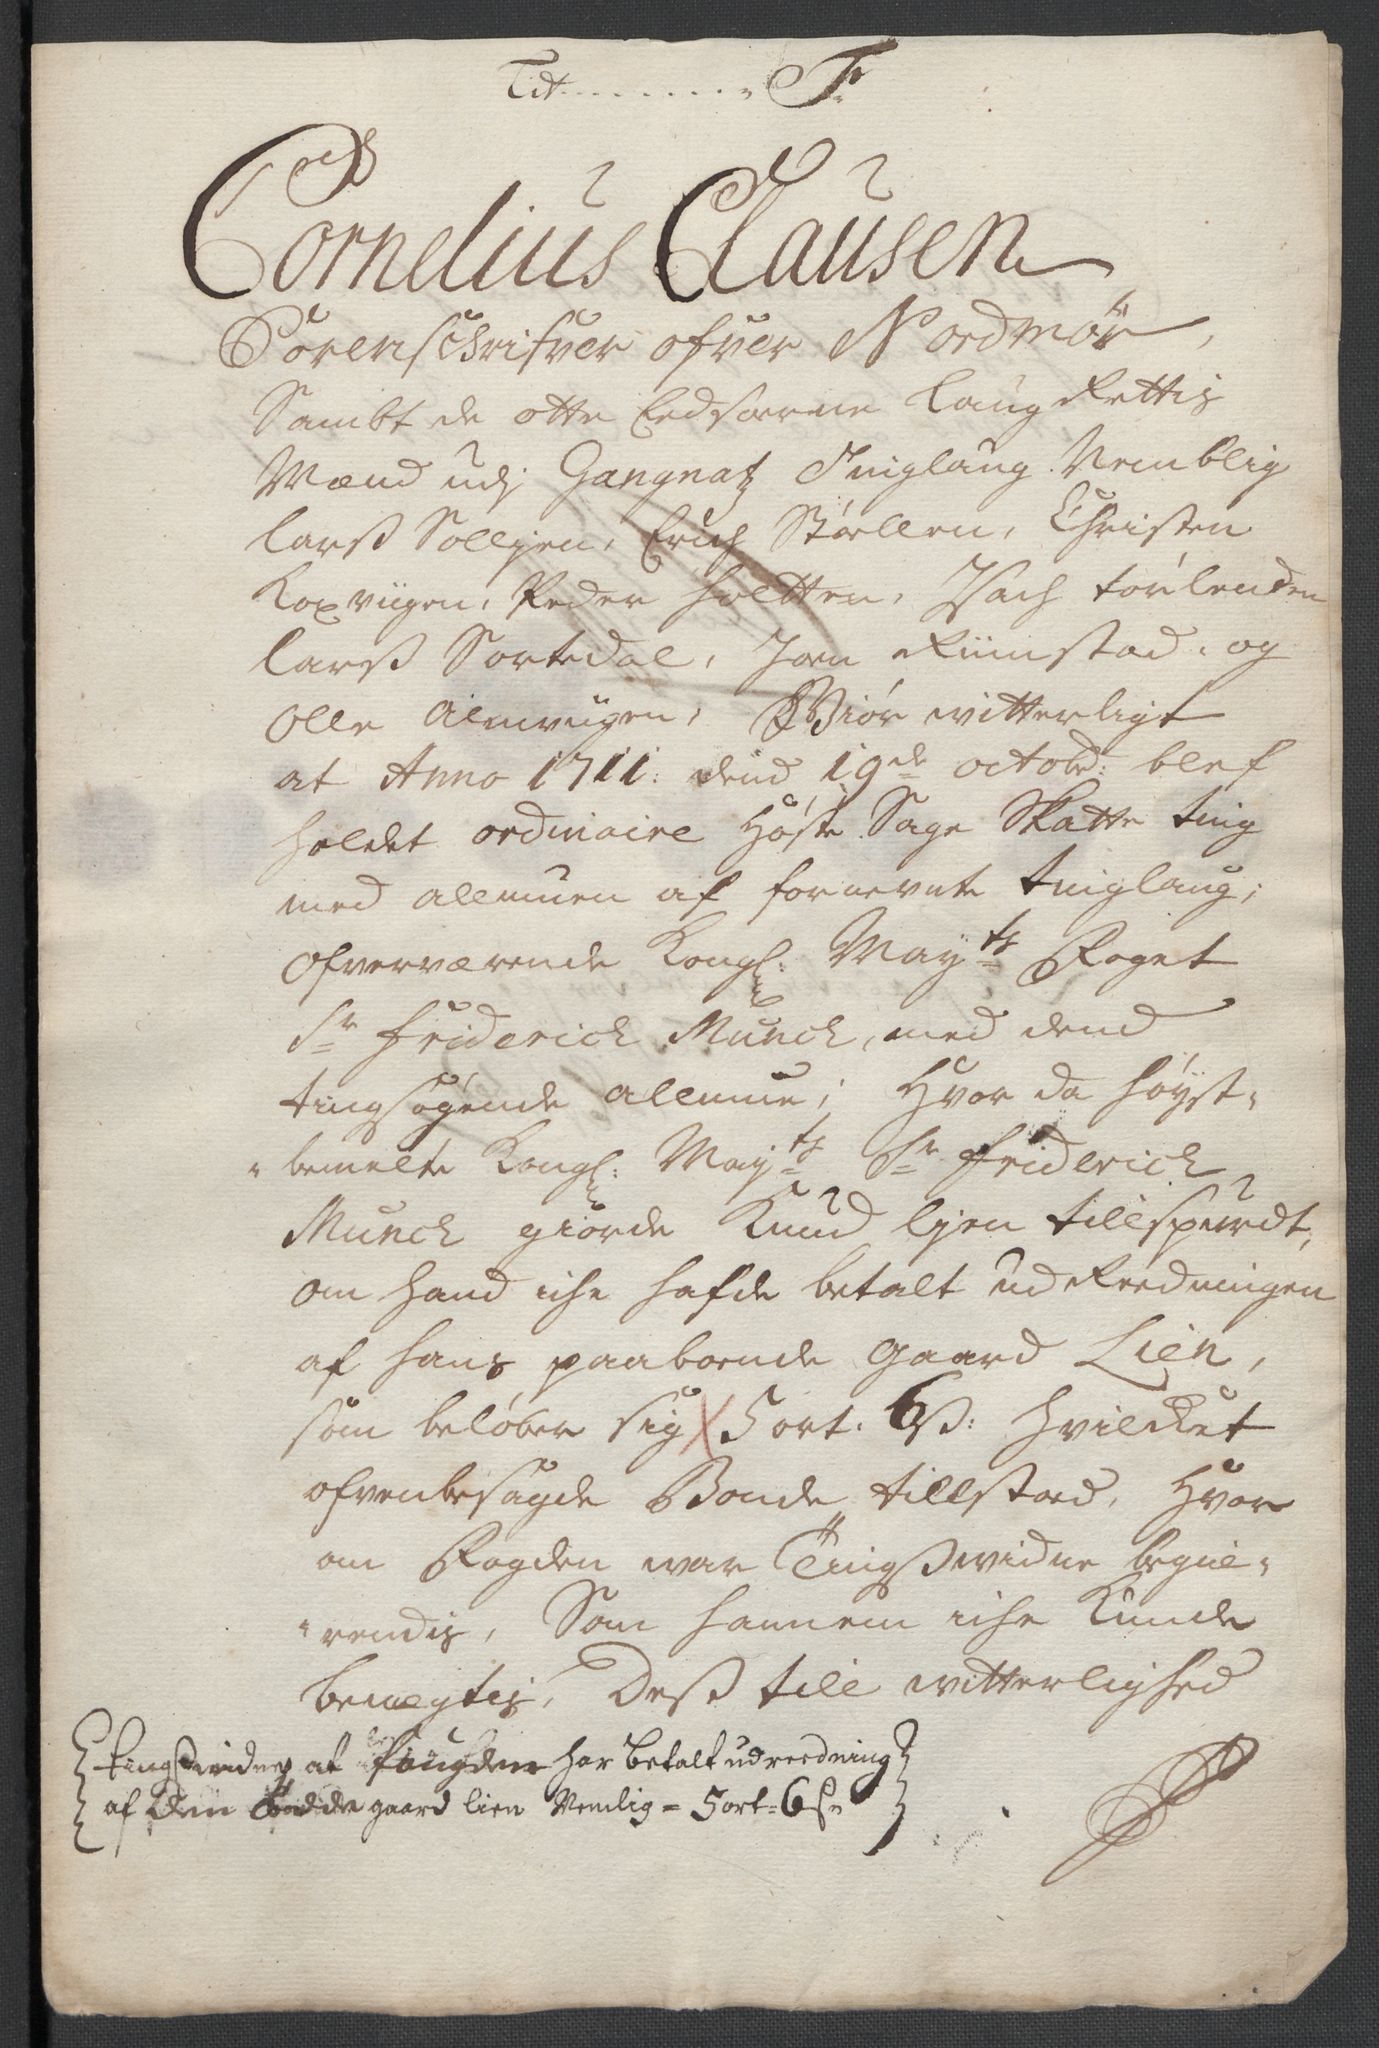 Lit ........ F:
Cornelius Clausen
Sorenschrifver ofver Nordmør,
Sambt de otte Eedsorne Laug Rettis
Mænd udj Gangnatz Tinglaug Nemblig
Larß Solljen, Erich Støellen, Christen
Koxviigen, Peder Holtten, Isach Torlenden
Larß Sortedal, Joen Riimstad, og
Olle Almviigen, Giør witterligt
at Anno 1711: dend 19de octobr: blef
holdet ordinaire Høste Sage Skatte ting
med allmuen af fornevnte tinglaug,
ofverværende Kongl: Mayts Foget
Sr Friderich Munch, med dend
tingsøgende allmue; Hvor da høyst-
bemelte Kongl: Mayts Sr Friderich
Munch giorde Knud Ljen tillspurdt,
om hand iche hafde betalt udReedningen
af hans paaboende gaard Lien,
som beløber sig 5 ort. 6 ß: hvilcket
ofvenbesagde Bonde tillstoed, Hvor
om Fogden war Tingßwidne begie-
rendis, Som hannem iche Kunde
benægtis, Deß till witterlighed
tingßwidne at fougden har betalt udreedning
af Den gaard lien Nemlig = 5 ort = 6 ß